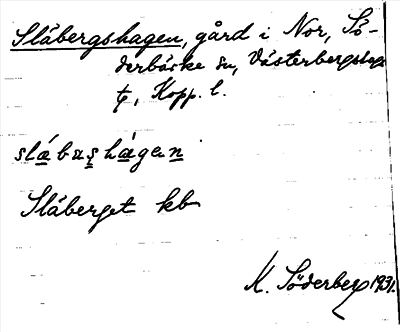 Slåbergshagen, gård i Nor, Sö-
derbärke sn, Västerbergslags
tg, Kopp. l.
slábashàgen
Slåberget kb
K. Söderberg 1931.